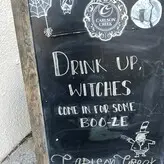 CARLSON
CREEK
DRINK UP,
WITCHES
COME IN FOR SOME
BOO-ZE
Carlson Creek